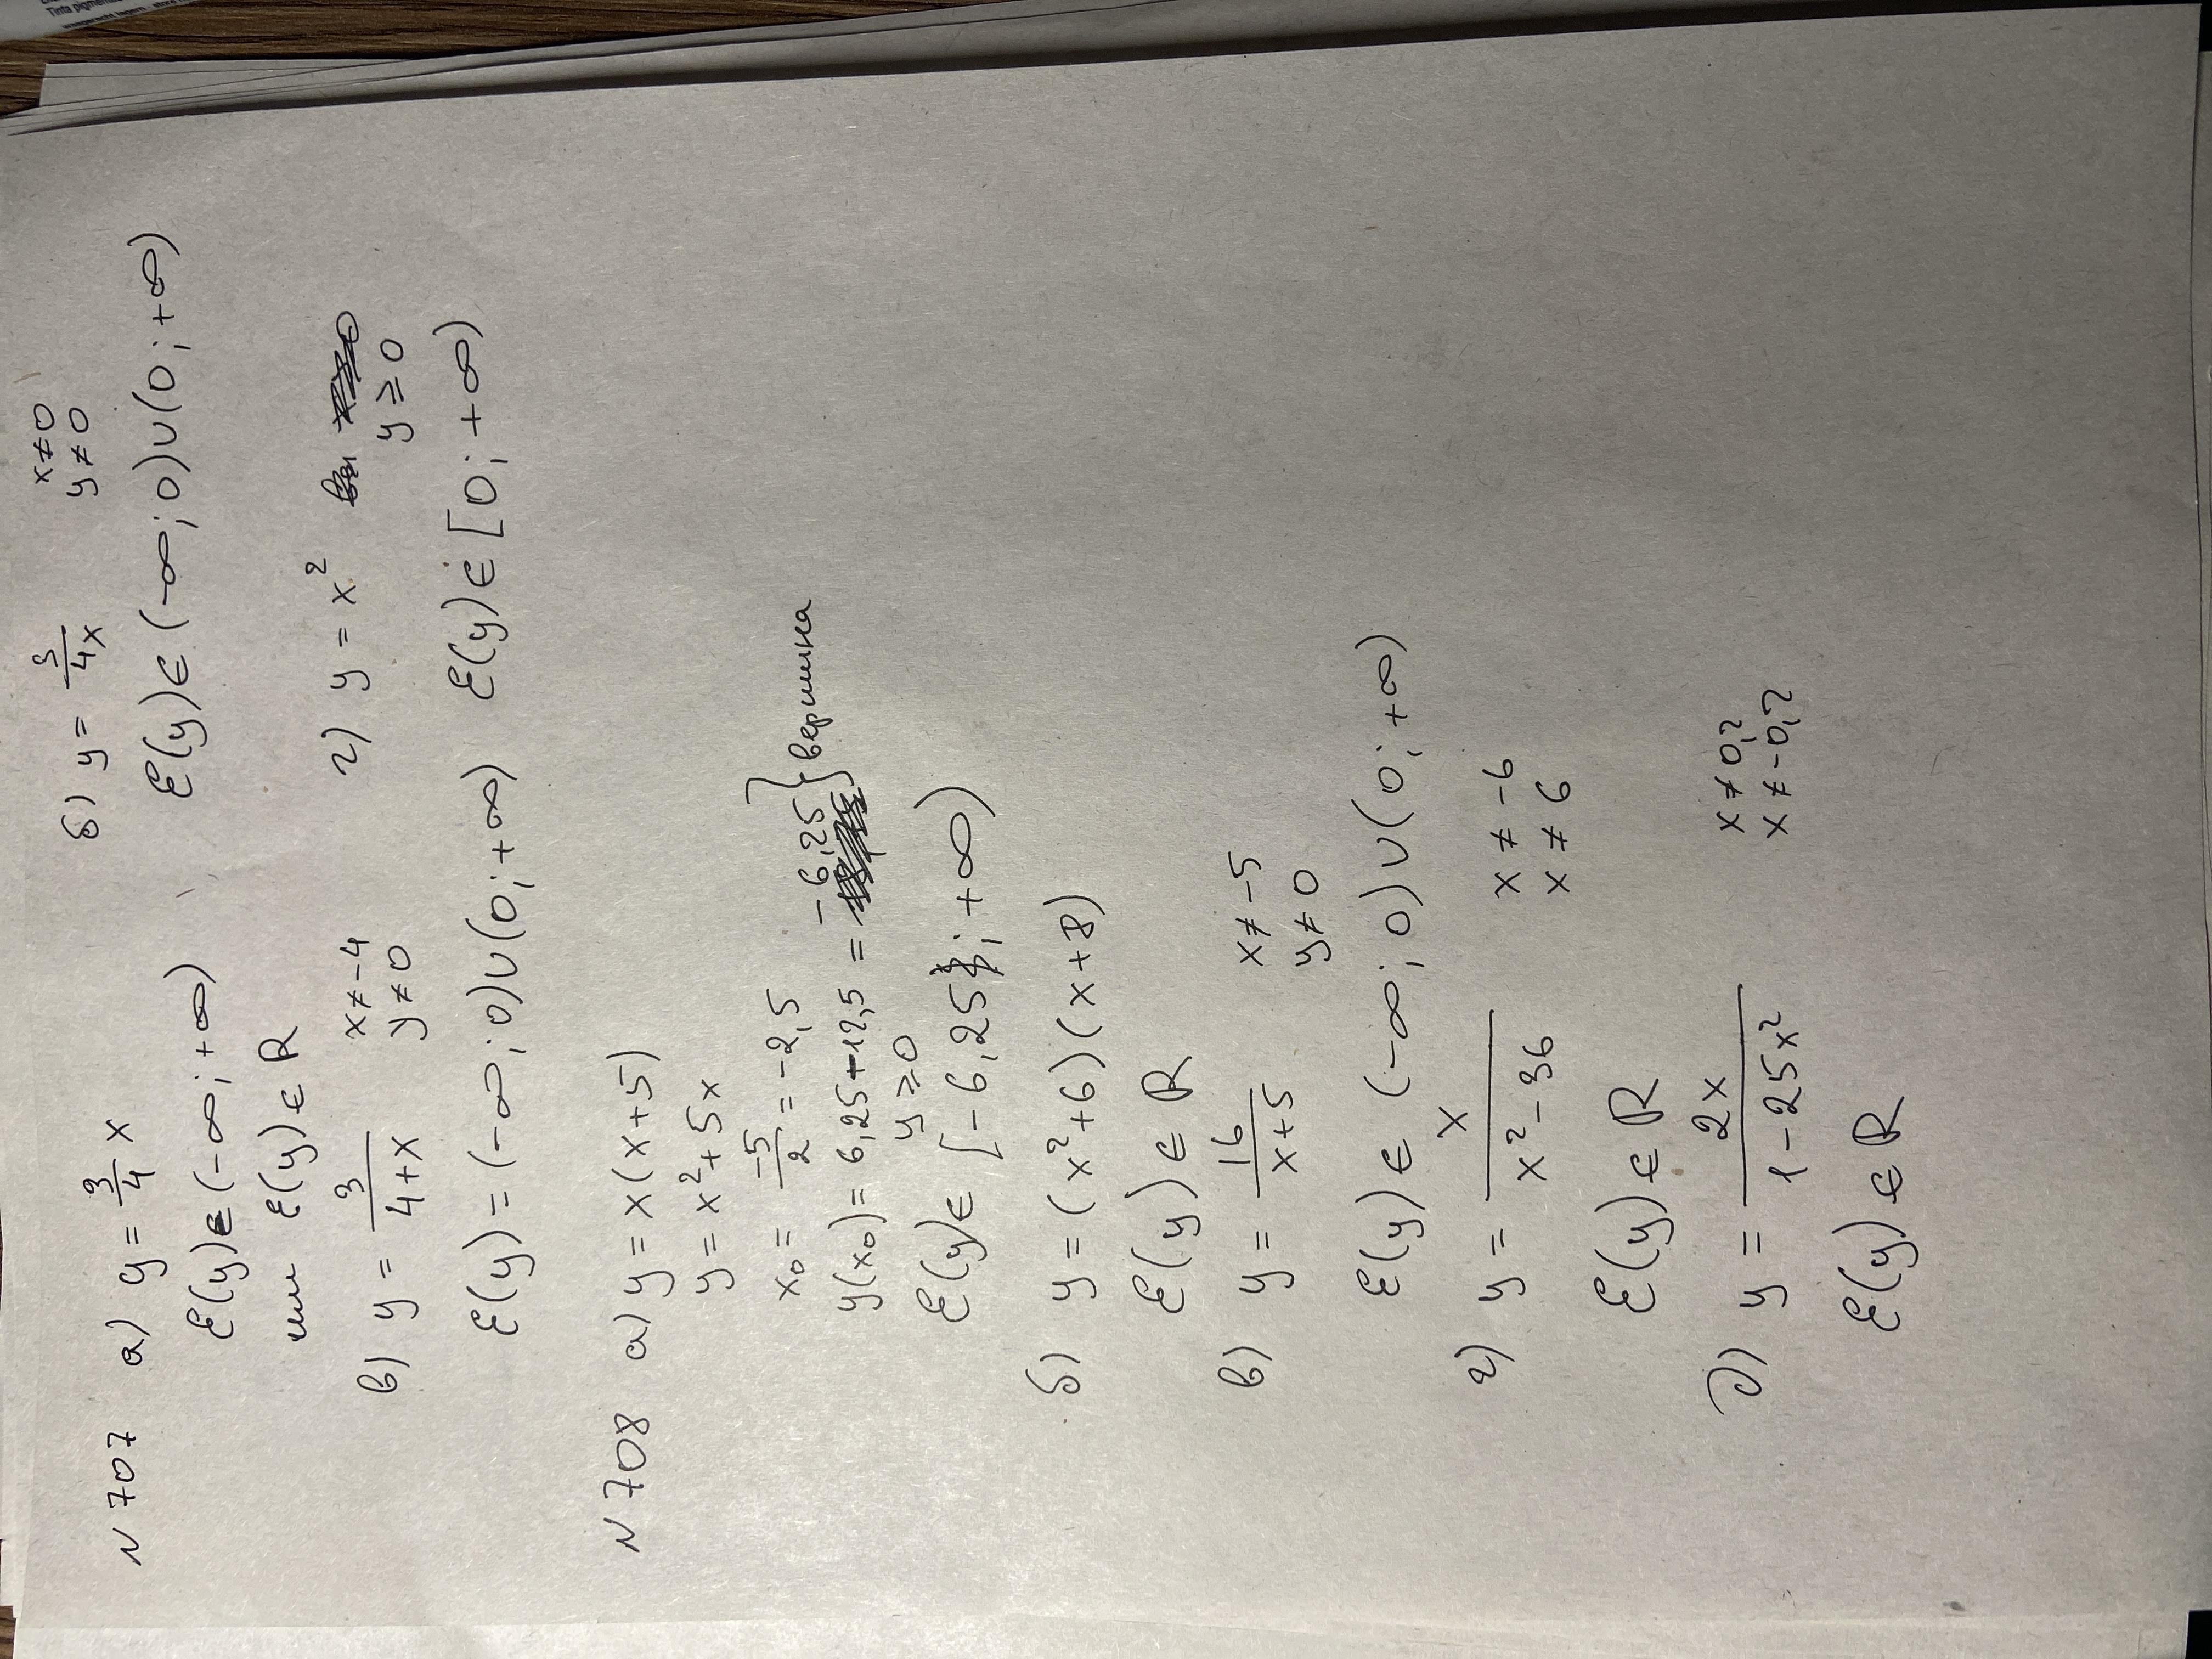 N 707 а) y = 3/4 x
E(y)∈(-∞;+∞)
или E(y)∈R
б) y = 3/4x x≠0
y≠0
E(y)∈(-∞;0)∪(0;+∞)
в) y = 3/4+x x≠-4
y≠0
E(y)=(-∞;0)∪(0;+∞)
г) y = x²
y≥0
E(y)∈[0;+∞)
N 708 а) y = x(x+5)
y = x²+5x
x₀ = -5/2 = -2,5
y(x₀) = 6,25-12,5 = -6,25 } вершина
y≥0
E(y)∈[-6,25;+∞)
б) y = (x²+6)(x+8)
E(y)∈R
в) y = 16/x+5 x≠-5
y≠0
E(y)∈(-∞;0)∪(0;+∞)
г) y = x/x²-36 x≠-6
x≠6
E(y)∈R
д) y = 2x/1-25x² x≠0,2
x≠-0,2
E(y)∈R